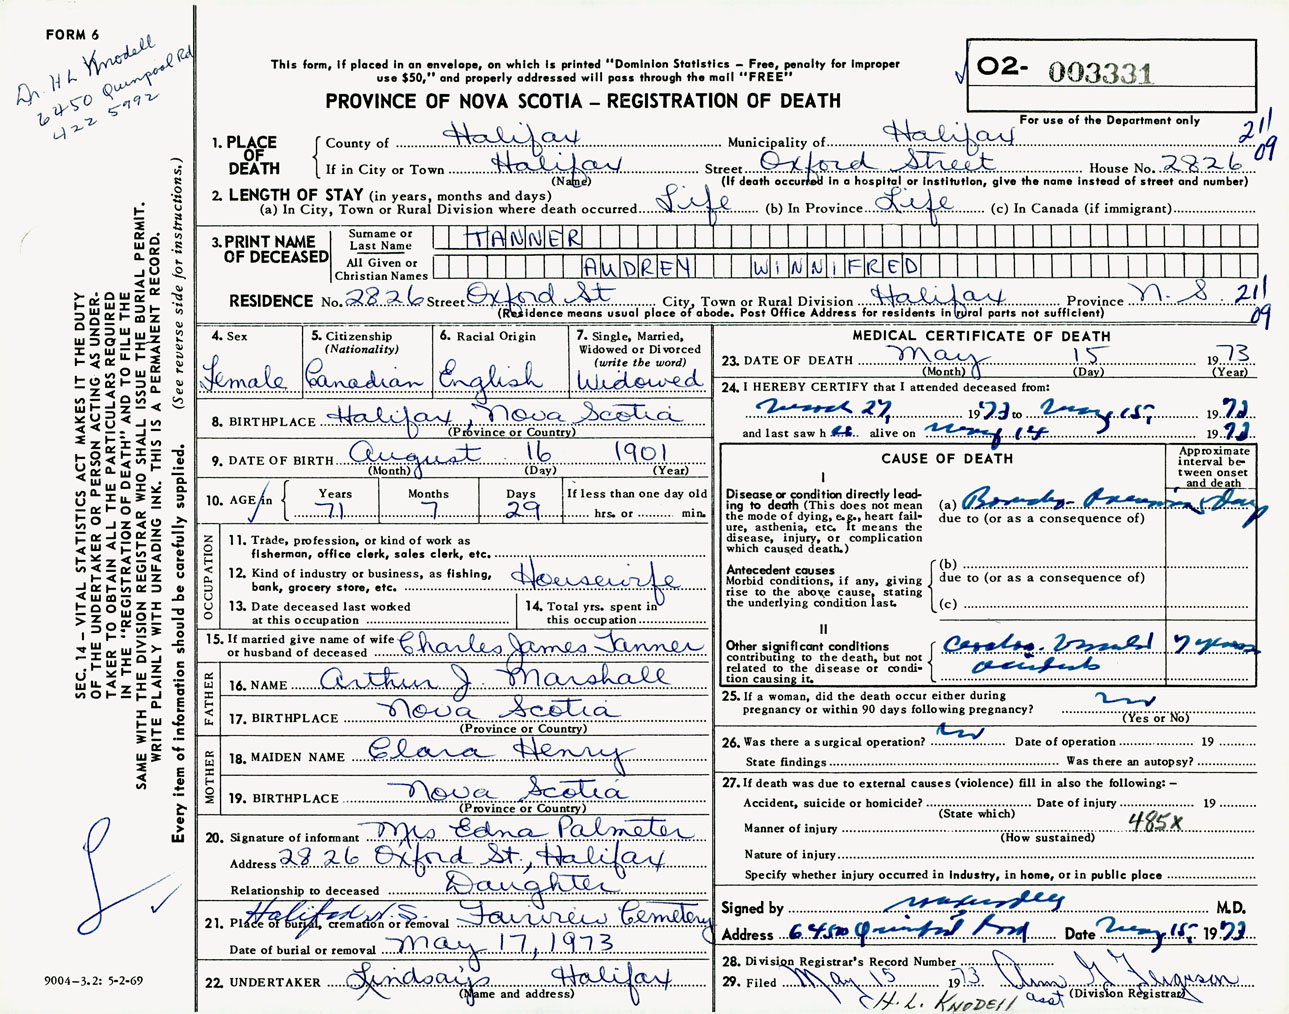 FORM 6
Dr. H L Knodell
6450 Quinpool Rd
422 5792
This form, if placed in an envelope, on which is printed "Dominion Statistics – Free, penalty for improper
use $50," and properly addressed will pass through the mail "FREE"
PROVINCE OF NOVA SCOTIA – REGISTRATION OF DEATH
02- 003331
For use of the Department only
211
09
1. PLACE OF DEATH
County of Halifax Municipality of Halifax
If in City or Town Halifax Street Oxford Street House No. 2826
(Name) (If death occurred in a hospital or institution, give the name instead of street and number)
2. LENGTH OF STAY (in years, months and days)
(a) In City, Town or Rural Division where death occurred Life (b) In Province Life (c) In Canada (if immigrant)
3. PRINT NAME OF DECEASED
Surname or Last Name TANNER
All Given or Christian Names AUDREY WINNIFRED
RESIDENCE No. 2826 Street Oxford St City, Town or Rural Division Halifax Province N. S 211
09
(Residence means usual place of abode. Post Office Address for residents in rural parts not sufficient)
4. Sex
Female
5. Citizenship
(Nationality)
Canadian
6. Racial Origin
English
7. Single, Married,
Widowed or Divorced
(write the word)
Widowed
8. BIRTHPLACE Halifax, Nova Scotia
(Province or Country)
9. DATE OF BIRTH August 16 1901
(Month) (Day) (Year)
10. AGE in
Years Months Days If less than one day old
71 7 29 hrs. or min.
OCCUPATION
11. Trade, profession, or kind of work as
fisherman, office clerk, sales clerk, etc.
12. Kind of industry or business, as fishing,
bank, grocery store, etc. Housewife
13. Date deceased last worked
at this occupation
14. Total yrs. spent in
this occupation
15. If married give name of wife
or husband of deceased Charles James Tanner
FATHER
16. NAME Arthur J. Marshall
17. BIRTHPLACE Nova Scotia
(Province or Country)
MOTHER
18. MAIDEN NAME Clara Henry
19. BIRTHPLACE Nova Scotia
(Province or Country)
20. Signature of informant Mrs Edna Palmeter
Address 2826 Oxford St., Halifax
Relationship to deceased Daughter
Halifax N.S.
21. Place of burial, cremation or removal Fairview Cemetery
Date of burial or removal May 17, 1973
22. UNDERTAKER Lindsay's Halifax
(Name and address)
MEDICAL CERTIFICATE OF DEATH
23. DATE OF DEATH May 15 1973
(Month) (Day) (Year)
24. I HEREBY CERTIFY that I attended deceased from:
March 27, 1973 to May 15, 1973
and last saw her alive on May 14 1973
CAUSE OF DEATH
Approximate
interval be-
tween onset
and death
I
Disease or condition directly lead-
ing to death (This does not mean
the mode of dying, e.g., heart fail-
ure, asthenia, etc. It means the
disease, injury, or complication
which caused death.)
(a) Broncho-Pneumonia Day
due to (or as a consequence of)
Antecedent causes
Morbid conditions, if any, giving
rise to the above cause, stating
the underlying condition last.
(b)
due to (or as a consequence of)
(c)
II
Other significant conditions
contributing to the death, but not
related to the disease or condi-
tion causing it.
Cerebro. Vascular 7 years
accidents
25. If a woman, did the death occur either during
pregnancy or within 90 days following pregnancy? No
(Yes or No)
26. Was there a surgical operation? No Date of operation 19
State findings Was there an autopsy?
27. If death was due to external causes (violence) fill in also the following: –
Accident, suicide or homicide? Date of injury 19
(State which)
Manner of injury 485X
(How sustained)
Nature of injury
Specify whether injury occurred in industry, in home, or in public place
Signed by M.D.
Address 6450 Quinpool Road Date May 15, 1973
28. Division Registrar's Record Number
29. Filed May 15 1973 Ann G Ferguson
asst (Division Registrar)
H. L. KNODELL
SEC. 14 – VITAL STATISTICS ACT MAKES IT THE DUTY
OF THE UNDERTAKER OR PERSON ACTING AS UNDER-
TAKER TO OBTAIN ALL THE PARTICULARS REQUIRED
IN THE "REGISTRATION OF DEATH" AND TO FILE THE
SAME WITH THE DIVISION REGISTRAR WHO SHALL ISSUE THE BURIAL PERMIT.
WRITE PLAINLY WITH UNFADING INK. THIS IS A PERMANENT RECORD.
Every item of information should be carefully supplied. (See reverse side for instructions.)
9004-3.2: 5-2-69